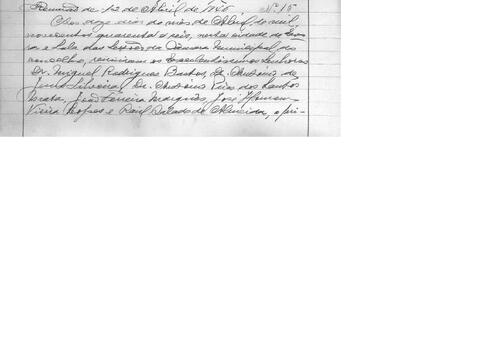 Reunião de 12 de Abril de 1946. Nº 15
Aos doze dias do mês de Abril de mil
novecentos quarenta e seis, nesta cidade de Evo-
ra e Sala das Sessões da Câmara Municipal do
concelho, reuniram os Excelentíssimos Senhores
Dr. Miguel Rodrigues Bastos, Dr. António de
Silveira, Dr. António Pires dos Santos
João Ferreira Marques, José Homem
Vieira Lopes e Raúl de Almeida, o pri-